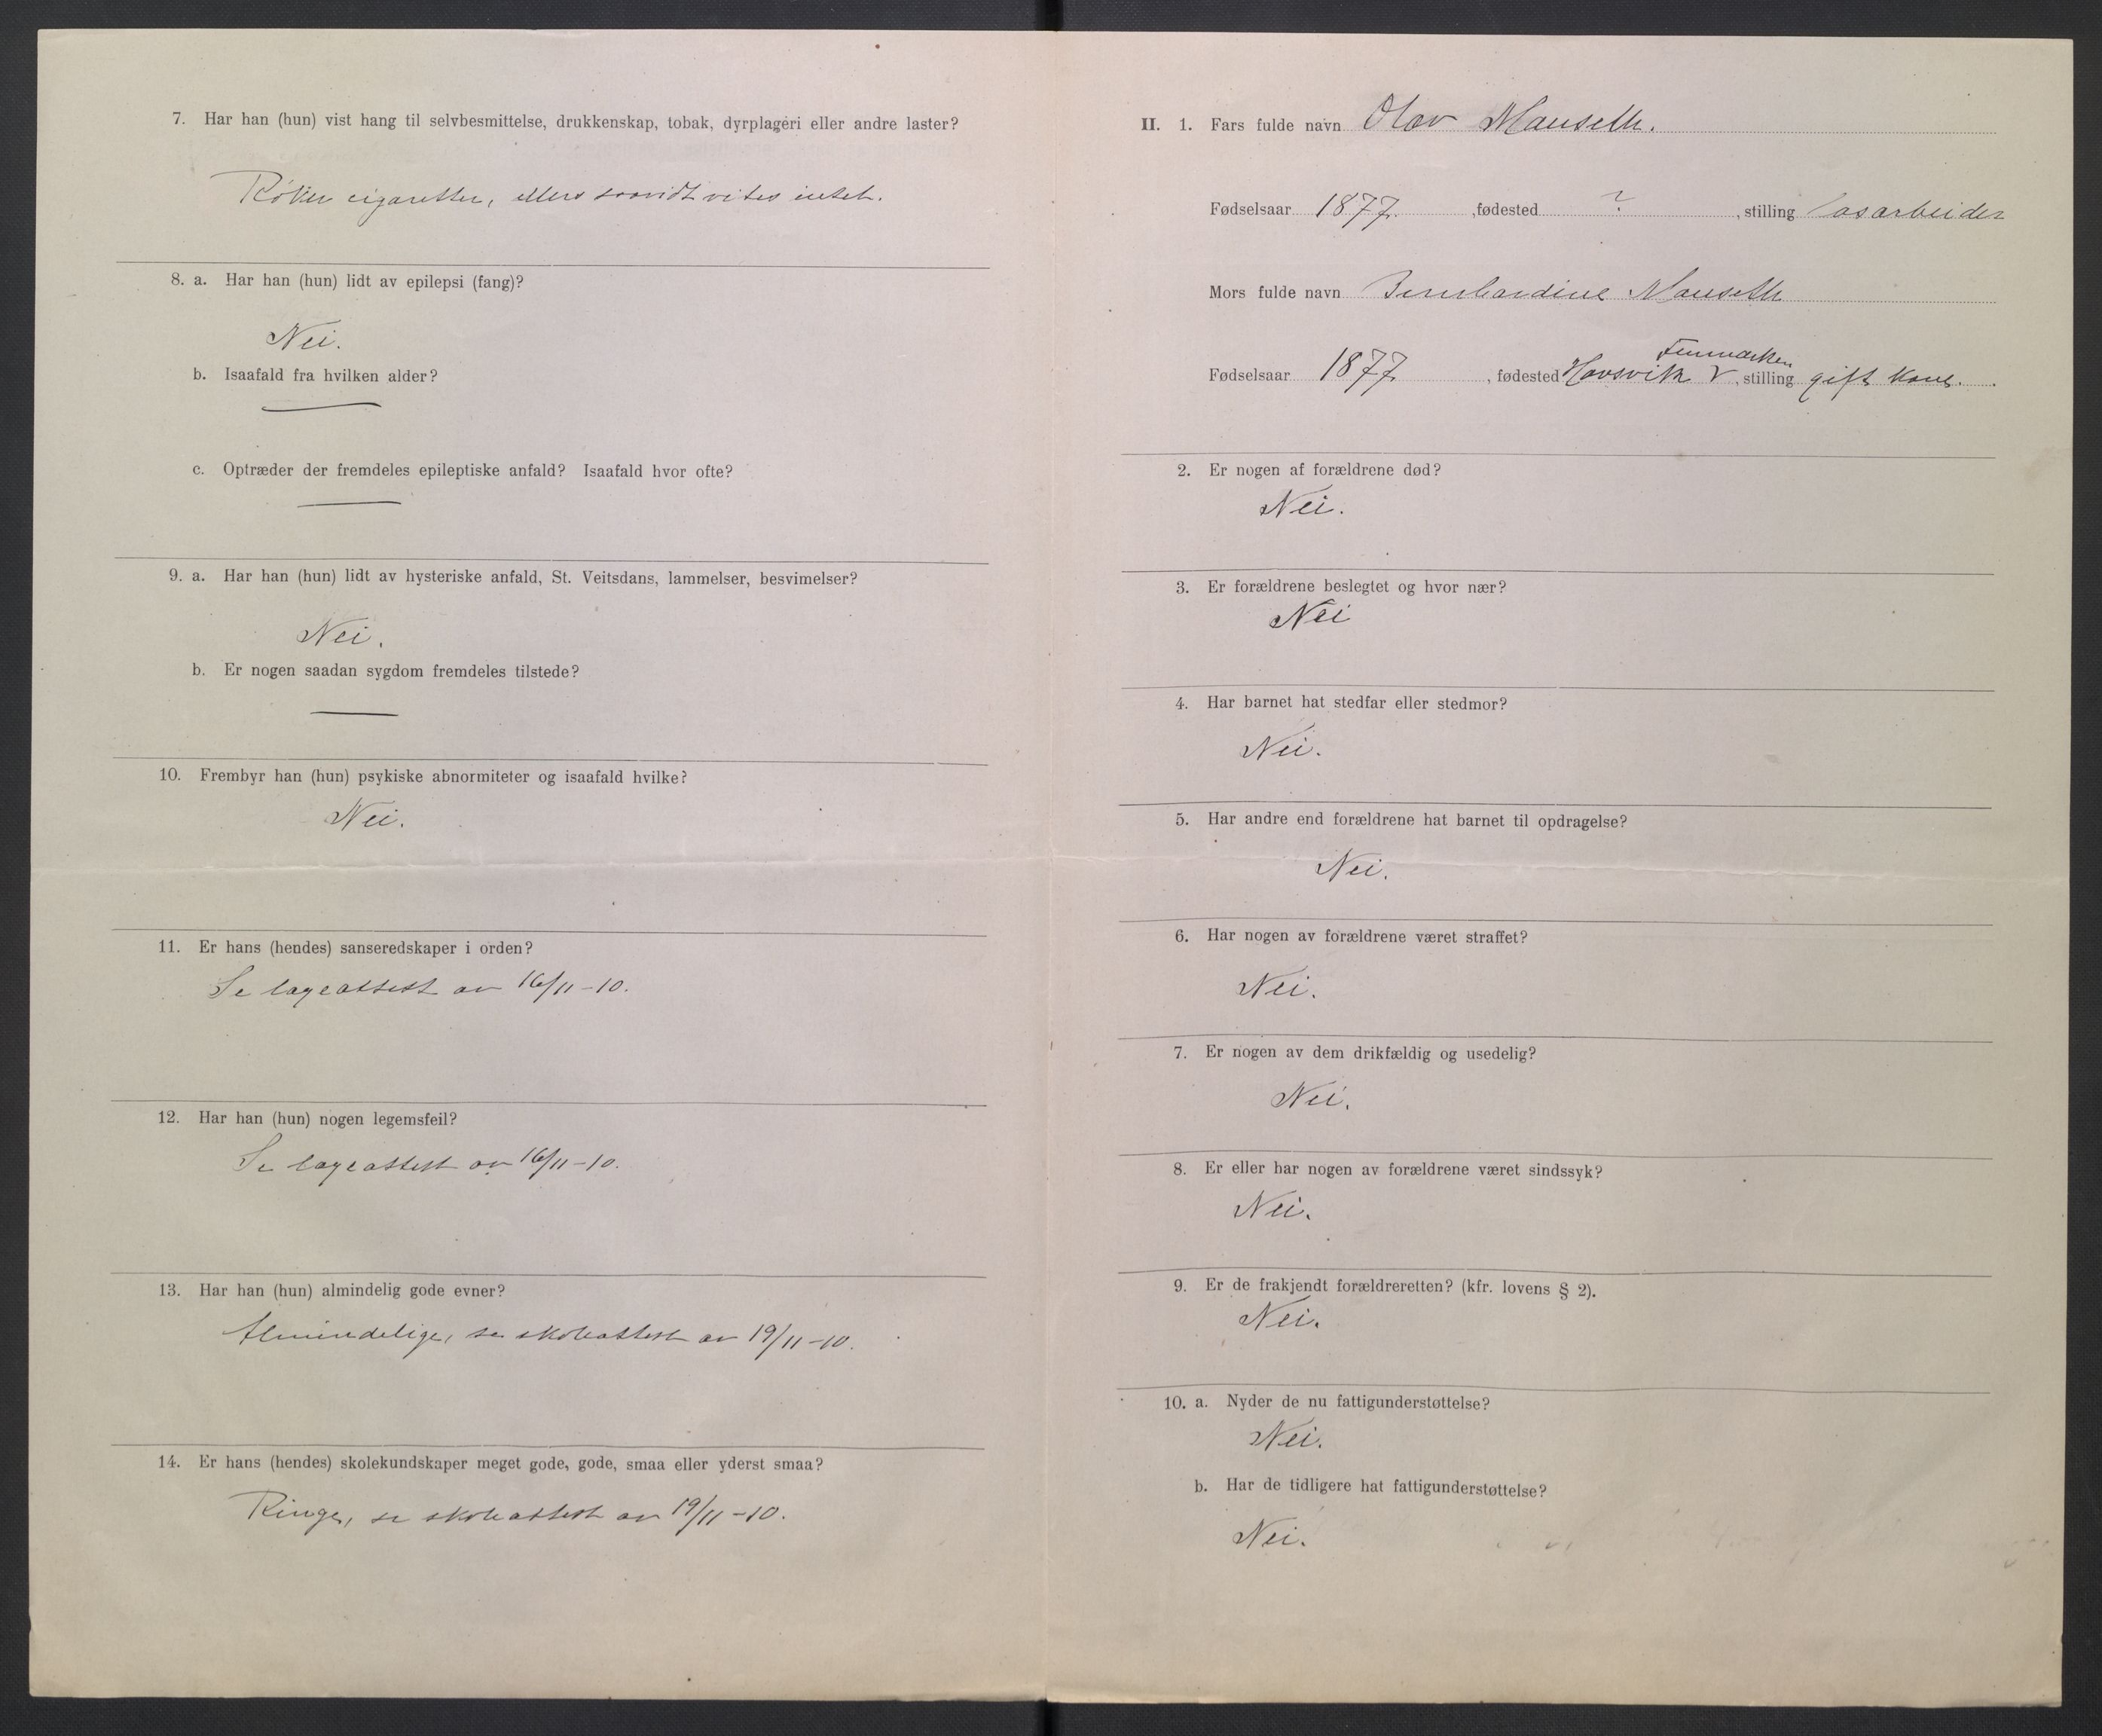 7. Har han (hun) vist hang til selvbesmittelse, drukkenskap, tobak, dyrplageri eller andre laster?
Røker cigaretter, ellers saavidt vites intet.
8. a. Har han (hun) lidt av epilepsi (fang)?
Nei.
b. Isaafald fra hvilken alder?
c. Optræder der fremdeles epileptiske anfald? Isaafald hvor ofte?
9. a. Har han (hun) lidt av hysteriske anfald, St. Veitsdans, lammelser, besvimelser?
Nei.
b. Er nogen saadan sygdom fremdeles tilstede?
10. Frembyr han (hun) psykiske abnormiteter og isaafald hvilke?
Nei.
11. Er hans (hendes) sanseredskaper i orden?
Se lægeattest av 16/11-10.
12. Har han (hun) nogen legemsfeil?
Se lægeattest av 16/11-10.
13. Har han (hun) almindelig gode evner?
Almindelige, se skoleattest av 19/11-10.
14. Er hans (hendes) skolekundskaper meget gode, gode, smaa eller yderst smaa?
Ringe, se skoleattest av 19/11-10.
II. 1. Fars fulde navn Olav Mauseth.
Fødselsaar 1877. , fødested ? , stilling løsarbeider
Mors fulde navn Bernhardine Mauseth
Finmarken
Fødselsaar 1877. , fødested V , stilling gift kone.
2. Er nogen af forældrene død?
Nei.
3. Er forældrene beslegtet og hvor nær?
Nei
4. Har barnet hat stedfar eller stedmor?
Nei.
5. Har andre end forældrene hat barnet til opdragelse?
Nei.
6. Har nogen av forældrene været straffet?
Nei.
7. Er nogen av dem drikfældig og usedelig?
Nei.
8. Er eller har nogen av forældrene været sindssyk?
Nei.
9. Er de frakjendt forældreretten? (kfr. lovens § 2).
Nei.
10. a. Nyder de nu fattigunderstøttelse?
Nei.
b. Har de tidligere hat fattigunderstøttelse?
Nei.